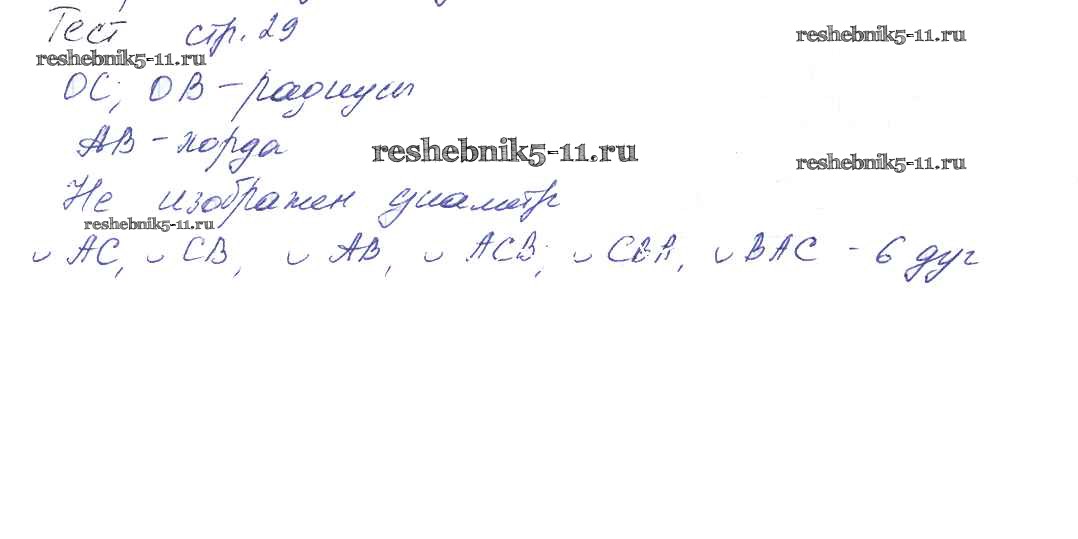 Тест стр. 29
reshebnik5-11.ru
reshebnik5-11.ru
ОС; ОВ - радиусы
АВ - хорда
reshebnik5-11.ru
reshebnik5-11.ru
Не изображен диаметр
reshebnik5-11.ru
◡ АС, ◡ СВ, ◡ АВ, ◡ АСВ; ◡ СВА, ◡ ВАС - 6 дуг